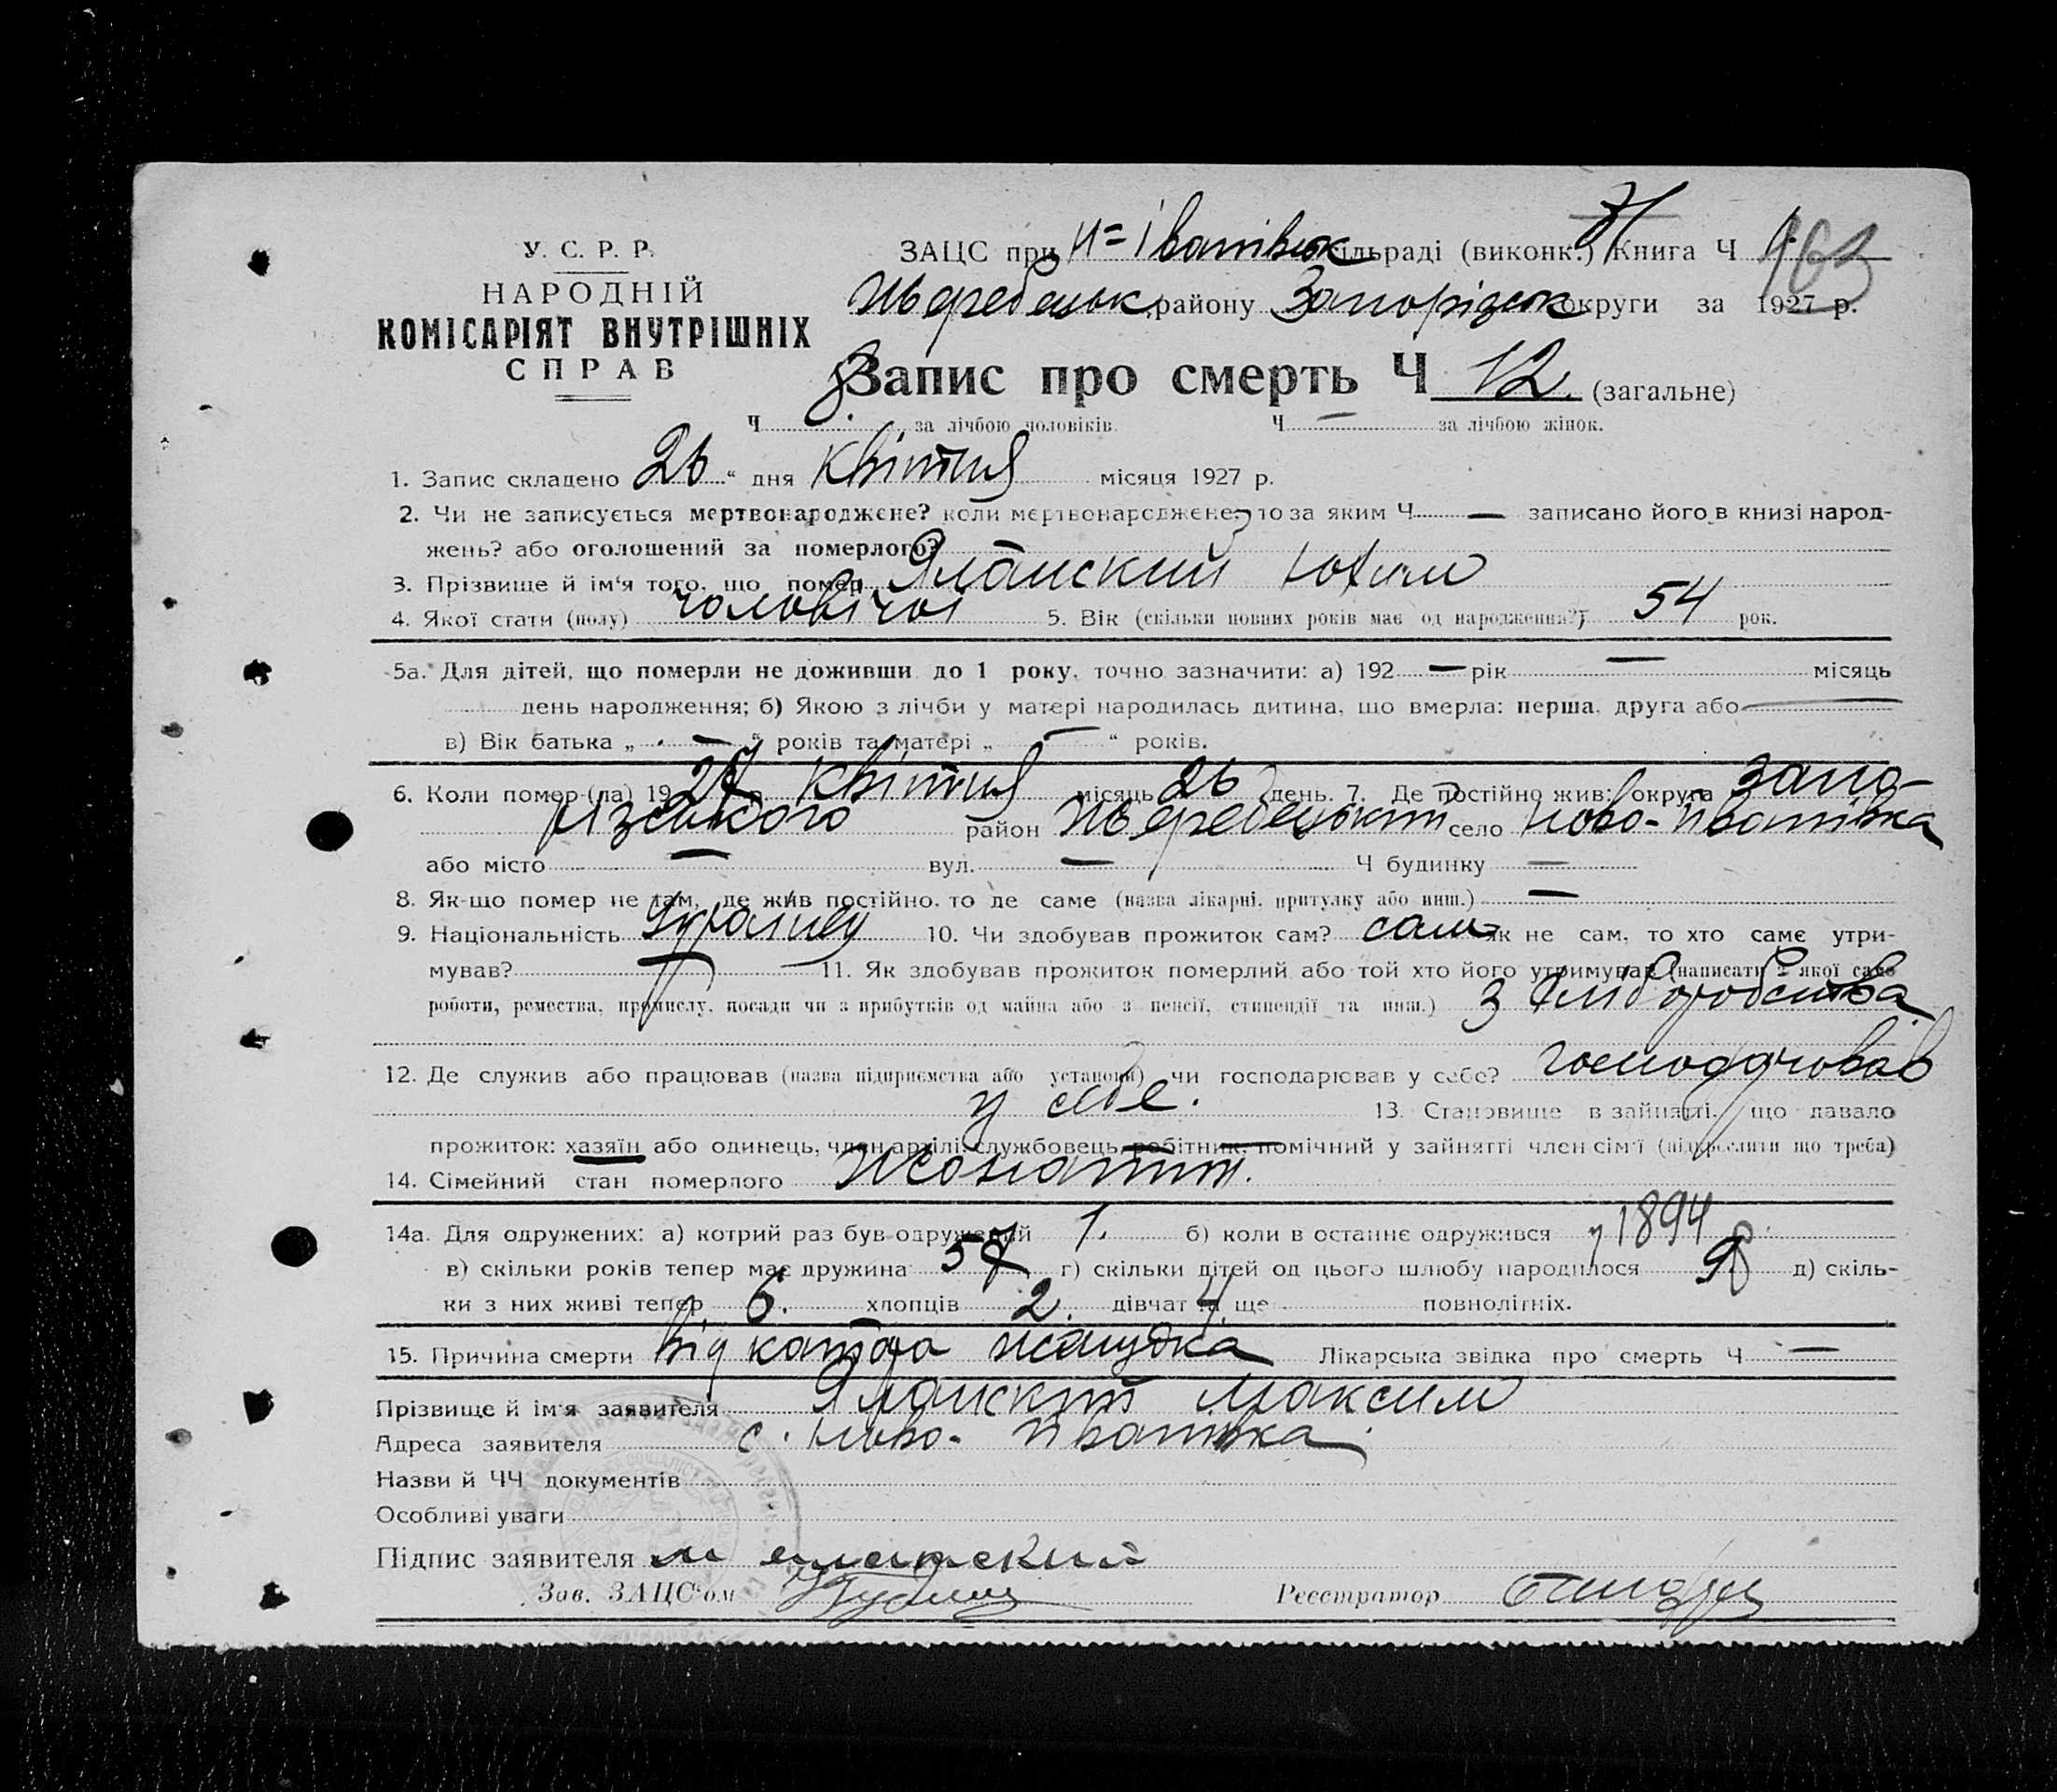 У. С. Р. Р.
НАРОДНІЙ
КОМІСАРІЯТ ВНУТРІШНІХ
СПРАВ
ЗАЦС при Н=Іванівськ сільраді (виконк.) Книга Ч 1. 163
Жеребецьк району Запорізьк округи за 1927 р.
Запис про смерть Ч 12. (загальне)
Ч 8. за лічбою чоловіків. Ч — за лічбою жінок.
1. Запис складено 26 “ дня Квітня місяця 1927 р.
2. Чи не записується мертвонароджене? коли мертвонароджене, то за яким Ч — записано його в книзі народ-
жень? або оголошений за померлого?
3. Прізвище й ім‘я того, що помер Яланский Юхим
4. Якої стати (полу) чоловічої 5. Вік (скільки повних років має од народження?) 54 рок.
5а. Для дітей, що померли не доживши до 1 року, точно зазначити: а) 192 — рік — місяць
день народження; б) Якою з лічби у матері народилась дитина, що вмерла: перша, друга або —
в) Вік батька „ — “ років та матері „ — “ років.
6. Коли помер (ла) 1927 р. Квітня місяць 26 день. 7. Де постійно жив: округа Запо-
різького район Жеребецький село Ново-Іванівка
або місто — вул. — Ч будинку —
8. Як-що помер не там, де жив постійно, то де саме (назва лікарні, притулку або инш.) —
9. Національність 10. Чи здобував прожиток сам? сам як не сам, то хто саме утри-
мував? 11. Як здобував прожиток померлий або той хто його утримував (написати з якої саме
роботи, ремества, промислу, посади чи з прибутків од майна або з пенсії, стипендії та инш.) З хліборобства
12. Де служив або працював (назва підприємства або установи) чи господарював у себе? господарював
у себе. 13. Становище в зайнятті, що давало
прожиток: хазяїн або одинець, член артілі, службовець, робітник, помічний у зайнятті член сім‘ї (підкреслити що треба)
14. Сімейний стан померлого жонатий.
14а. Для одружених: а) котрий раз був одружений 1. б) коли в останнє одружився у 1894 р.
в) скільки років тепер має дружина 57 г) скільки дітей од цього шлюбу народилося 9 д) скіль-
ки з них живі тепер 6. хлопців 2. дівчат 4 ще повнолітніх.
15. Причина смерти від катара жалудка Лікарська звідка про смерть Ч —
Прізвище й ім‘я заявителя Яланский Максим
Адреса заявителя с. Ново-Іванівка.
Назви й ЧЧ документів
Особливі уваги
Підпис заявителя м еланский
Зав. ЗАЦС‘ом
Реєстратор